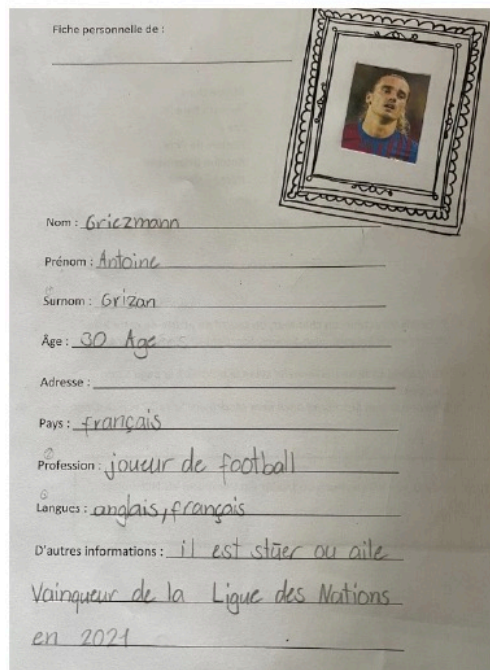 Fiche personnelle de :
Nom : Griezmann
Prénom : Antoine
Surnom : Grizan
Âge : 30 Age
Adresse :
Pays : français
Profession : joueur de football
Langues : anglais, français
D'autres informations : il est stüer ou aile
Vainqueur de la Ligue des Nations
en 2021